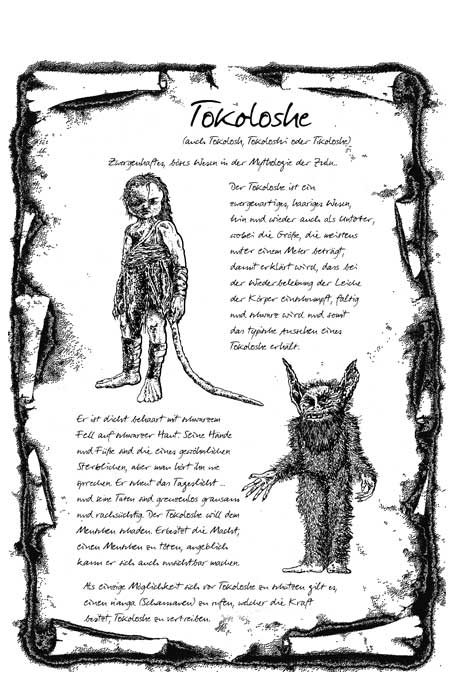 Tokoloshe
(auch Tokolosh, Tokoloshi oder Tikoloshe)
Zwergenhaftes, böses Wesen in der Mythologie der Zulu..
Der Tokoloshe ist ein
zwergenartiges, haariges Wesen,
hin und wieder auch als Untoter,
wobei die Größe, die meistens
unter einem Meter beträgt,
damit erklärt wird, dass bei
der Wiederbelebung der Leiche
der Körper einschrumpft, faltig
und schwarz wird und somit
das typische Aussehen eines
Tokoloshe erhält.
Er ist dicht behaart mit schwarzem
Fell auf schwarzer Haut. Seine Hände
und Füße sind die eines gewöhnlichen
Sterblichen, aber man hört ihn nie
sprechen. Er scheut das Tageslicht ...
und seine Taten sind grenzenlos grausam
und rachsüchtig. Der Tokoloshe will dem
Menschen schaden. Er besitzt die Macht,
einen Menschen zu töten, angeblich
kann er sich auch unsichtbar machen.
Als einzige Möglichkeit sich vor Tokoloshe zu schützen gilt es,
einen nanga (Schamanen) zu rufen, welcher die Kraft
besitzt, Tokoloshe zu vertreiben.